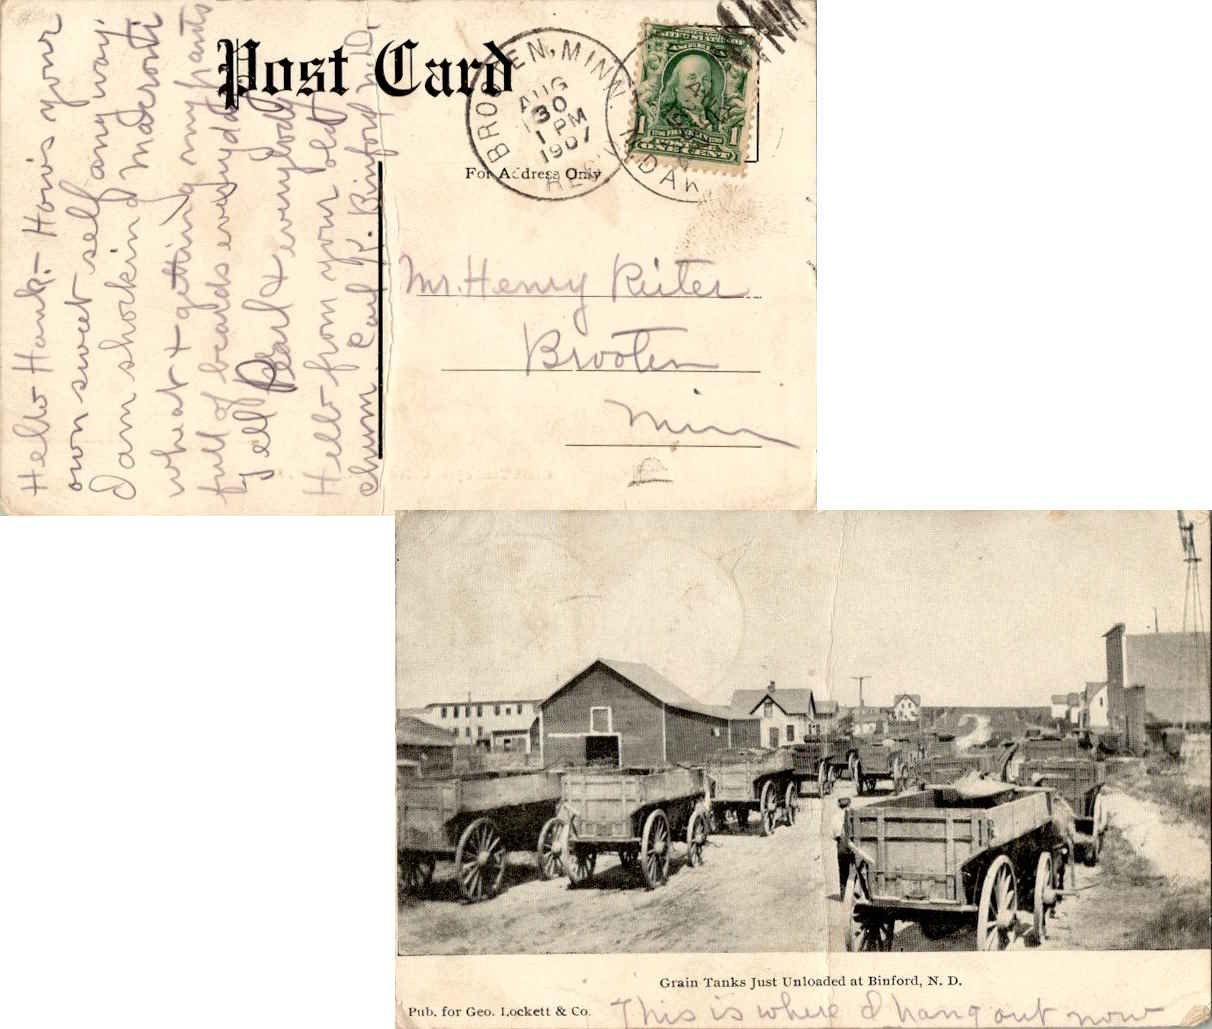 Post Card
For Address Only
BROOTEN, MINN.
AUG
30
1 PM
1907
REC'D
N. DAK
1 FRANKLIN 1
ONE CENT
Hello Hank – How is your
own sweet self any way.
I am shocking macroni
wheat + getting my pants
full of beards everyday
Tell Pearl + everybody
Hello from your old
chum. Carl K. Binford N.D.
Mr. Henry Reiter
Brooten
Minn
Grain Tanks Just Unloaded at Binford, N. D.
Pub. for Geo. Lockett & Co. This is where I hang out now